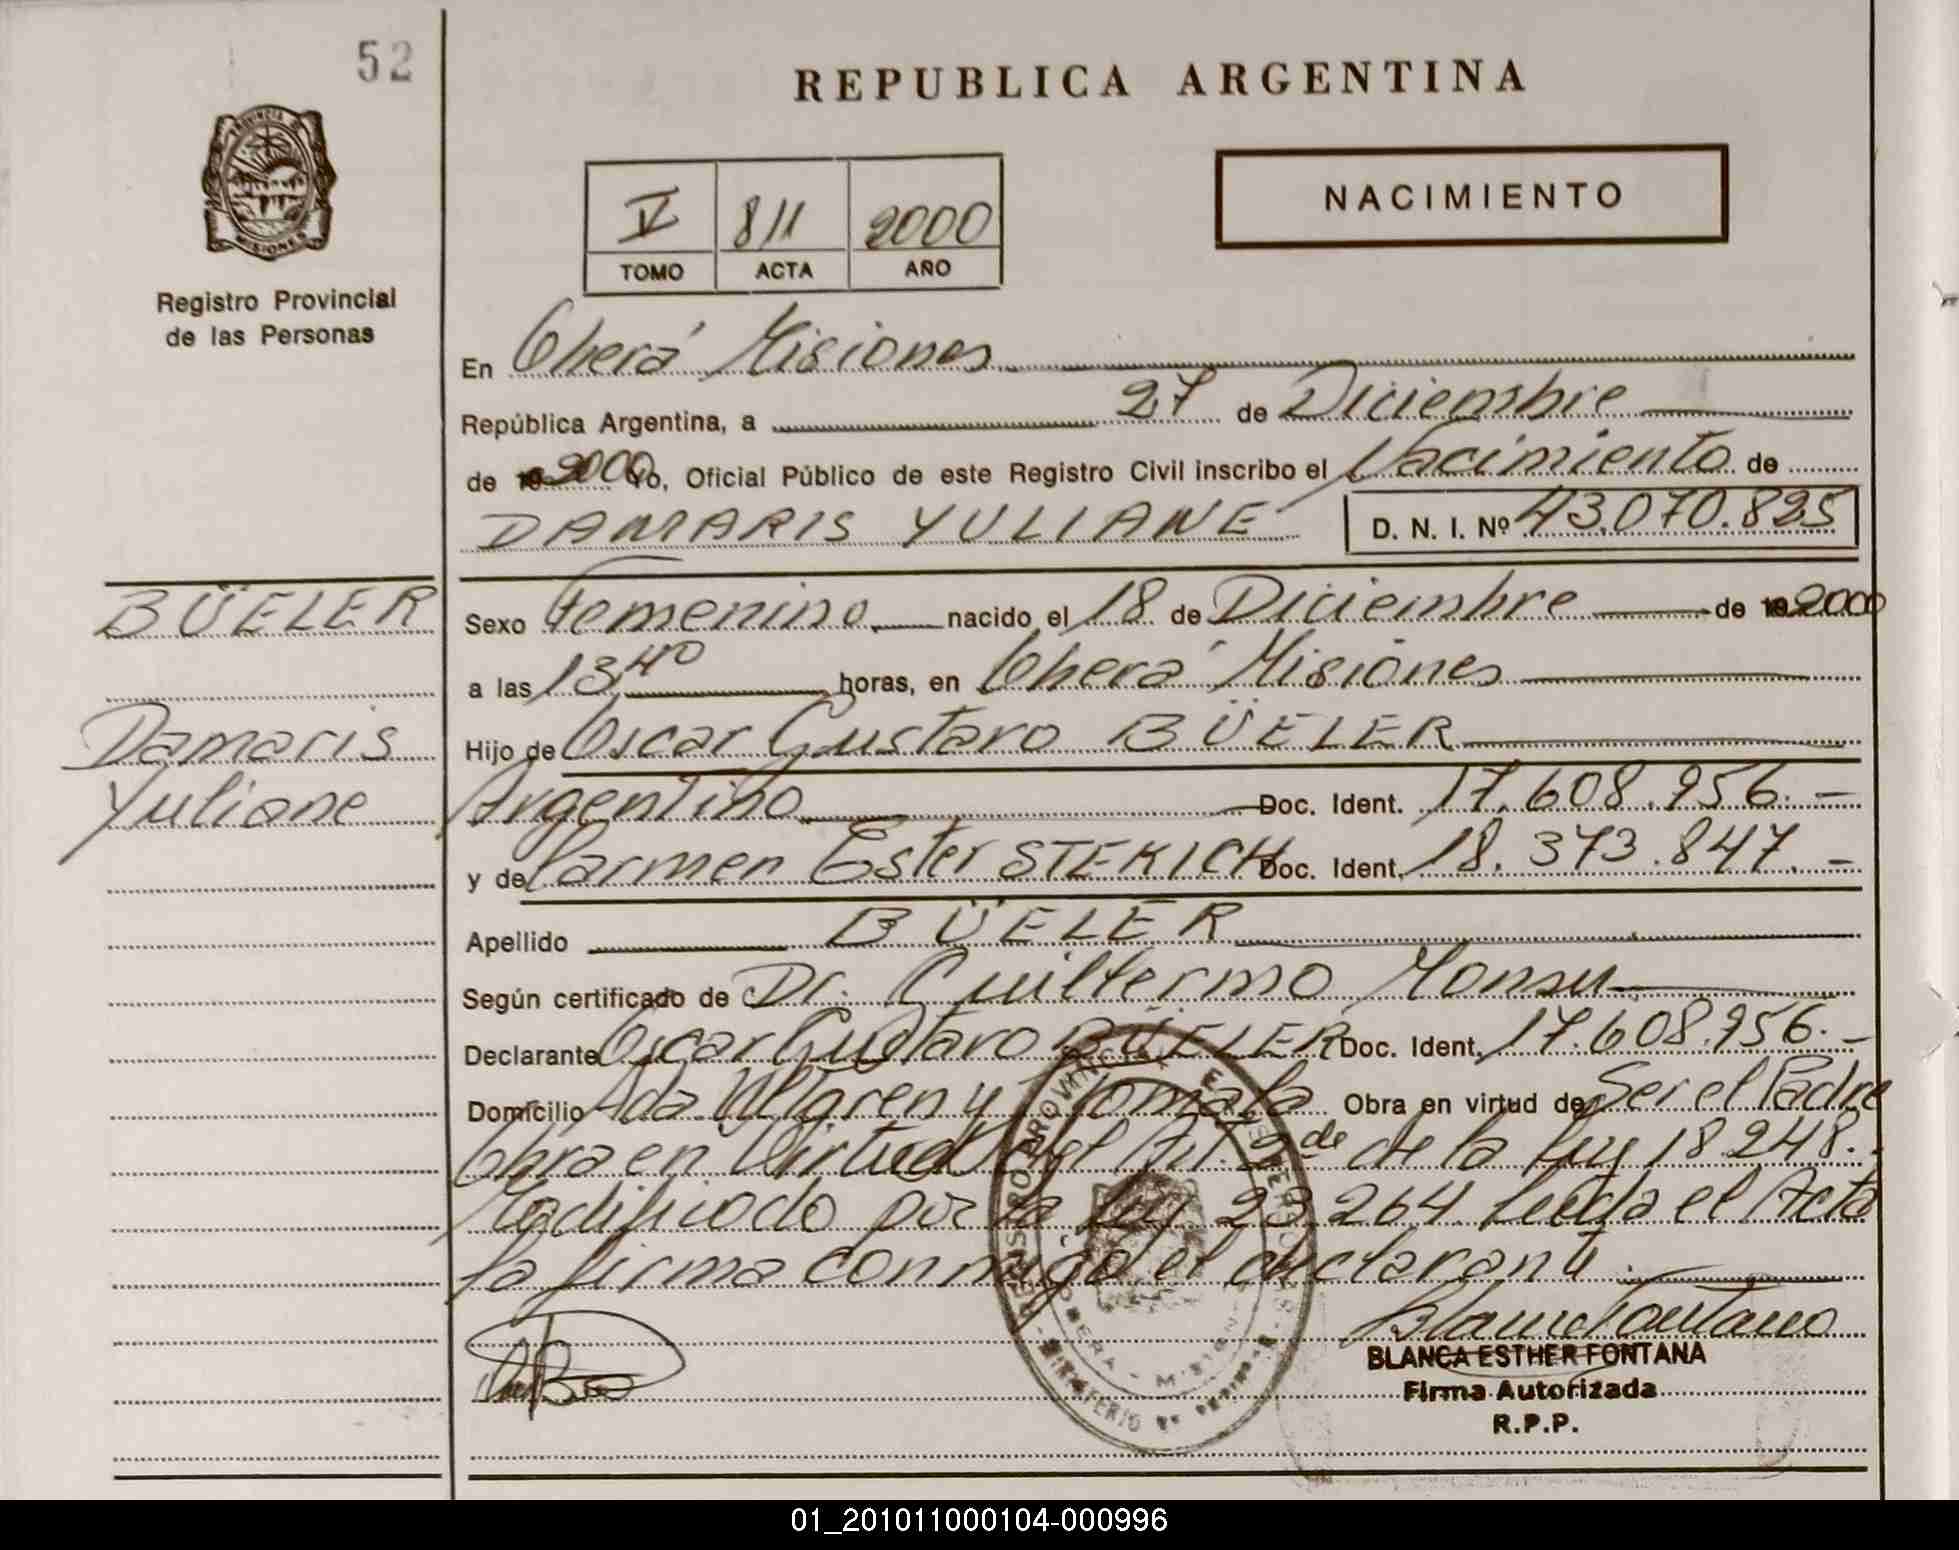 52
REPUBLICA ARGENTINA
PROVINCIA DE
MISIONES
NACIMIENTO
V 811 2000
TOMO ACTA AÑO
Registro Provincial
de las Personas
En Oberá Misiones
República Argentina, a 27 de Diciembre
de 2000 Yo, Oficial Público de este Registro Civil inscribo el Nacimiento de
DAMARIS YULIANE D. N. I. Nº 43.070.825
BÜELER
Damaris
Yuliane
Sexo Femenino nacido el 18 de Diciembre de 2000
a las 13,40 horas, en Oberá Misiones
Hijo de Oscar Gustavo BÜELER
Argentino Doc. Ident. 17.608.956.-
y de Carmen Ester STEKICH Doc. Ident. 18.373.847.-
Apellido BÜELER
Según certificado de Dr. Guillermo Monsu
Declarante Oscar Gustavo BÜELER Doc. Ident. 17.608.956.-
Domicilio Ada y Obra en virtud de Ser el Padre
Obra en Virtud del Art. 2de de la Ley 18248.
Modificado por la Ley 23.264 leída el Acta
la firma conmigo el declarante.
REGISTRO PROVINCIAL DE LAS PERSONAS
OBERA - MISIONES
MINISTERIO DE
BLANCA ESTHER FONTANA
Firma Autorizada
R.P.P.
01_201011000104-000996